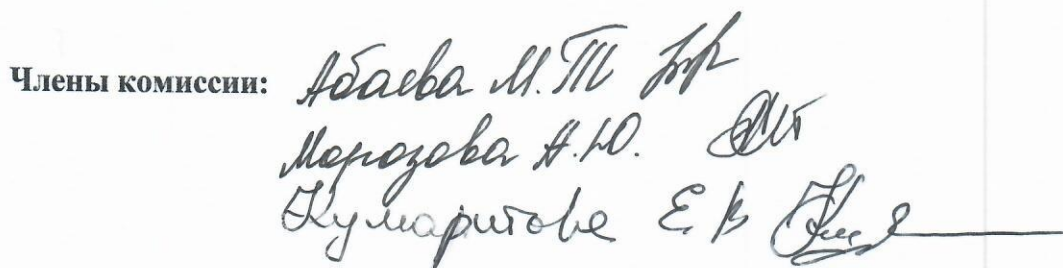 Члены комиссии: Абаева М.Т
Морозова А.Ю.
Кумаритова Е.В